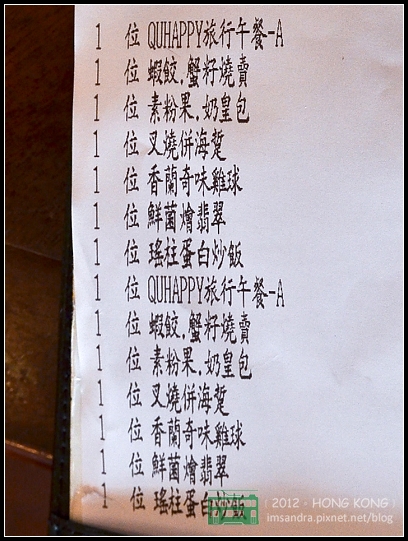 1 位 QUHAPPY旅行午餐-A
1 位 蝦餃.蟹籽燒賣
1 位 素粉果.奶皇包
1 位 叉燒併海蜇
1 位 香蘭奇味雞球
1 位 鮮菌燴翡翠
1 位 瑤柱蛋白炒飯
1 位 QUHAPPY旅行午餐-A
1 位 蝦餃.蟹籽燒賣
1 位 素粉果.奶皇包
1 位 叉燒併海蜇
1 位 香蘭奇味雞球
1 位 鮮菌燴翡翠
1 位 瑤柱蛋白炒飯
2012 · HONG KONG
imsandra.pixnet.net/blog